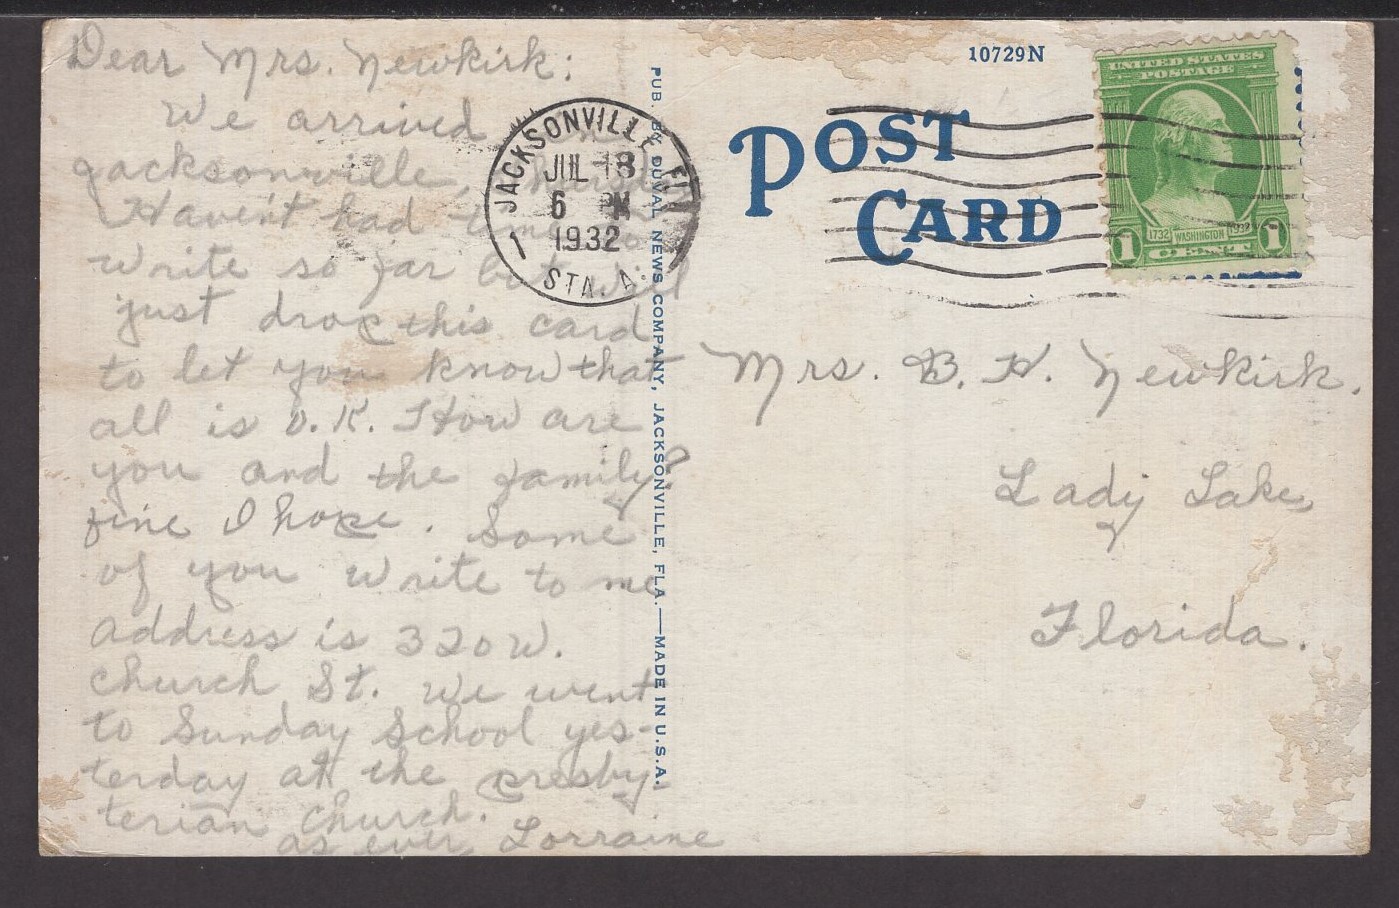 Dear Mrs. Newkirk:
We arrived
Jacksonville,
Haven't had time to
write so far but will
just drop this card
to let you know that
all is O.K. How are
you and the family?
fine I hope. Some
of you write to me
address is 320 W.
Church St. We went
to Sunday School yes-
terday at the Presby-
terian Church.
as ever Lorraine
JACKSONVILLE, FLA.
JUL 18
6 PM
1932
1
STA. A.
PUB. BY DUVAL NEWS COMPANY, JACKSONVILLE, FLA.—MADE IN U.S.A.
10729N
POST
CARD
UNITED STATES
POSTAGE
1732 WASHINGTON 1932
1 CENT 1
Mrs. B. H. Newkirk,
Lady Lake,
Florida.